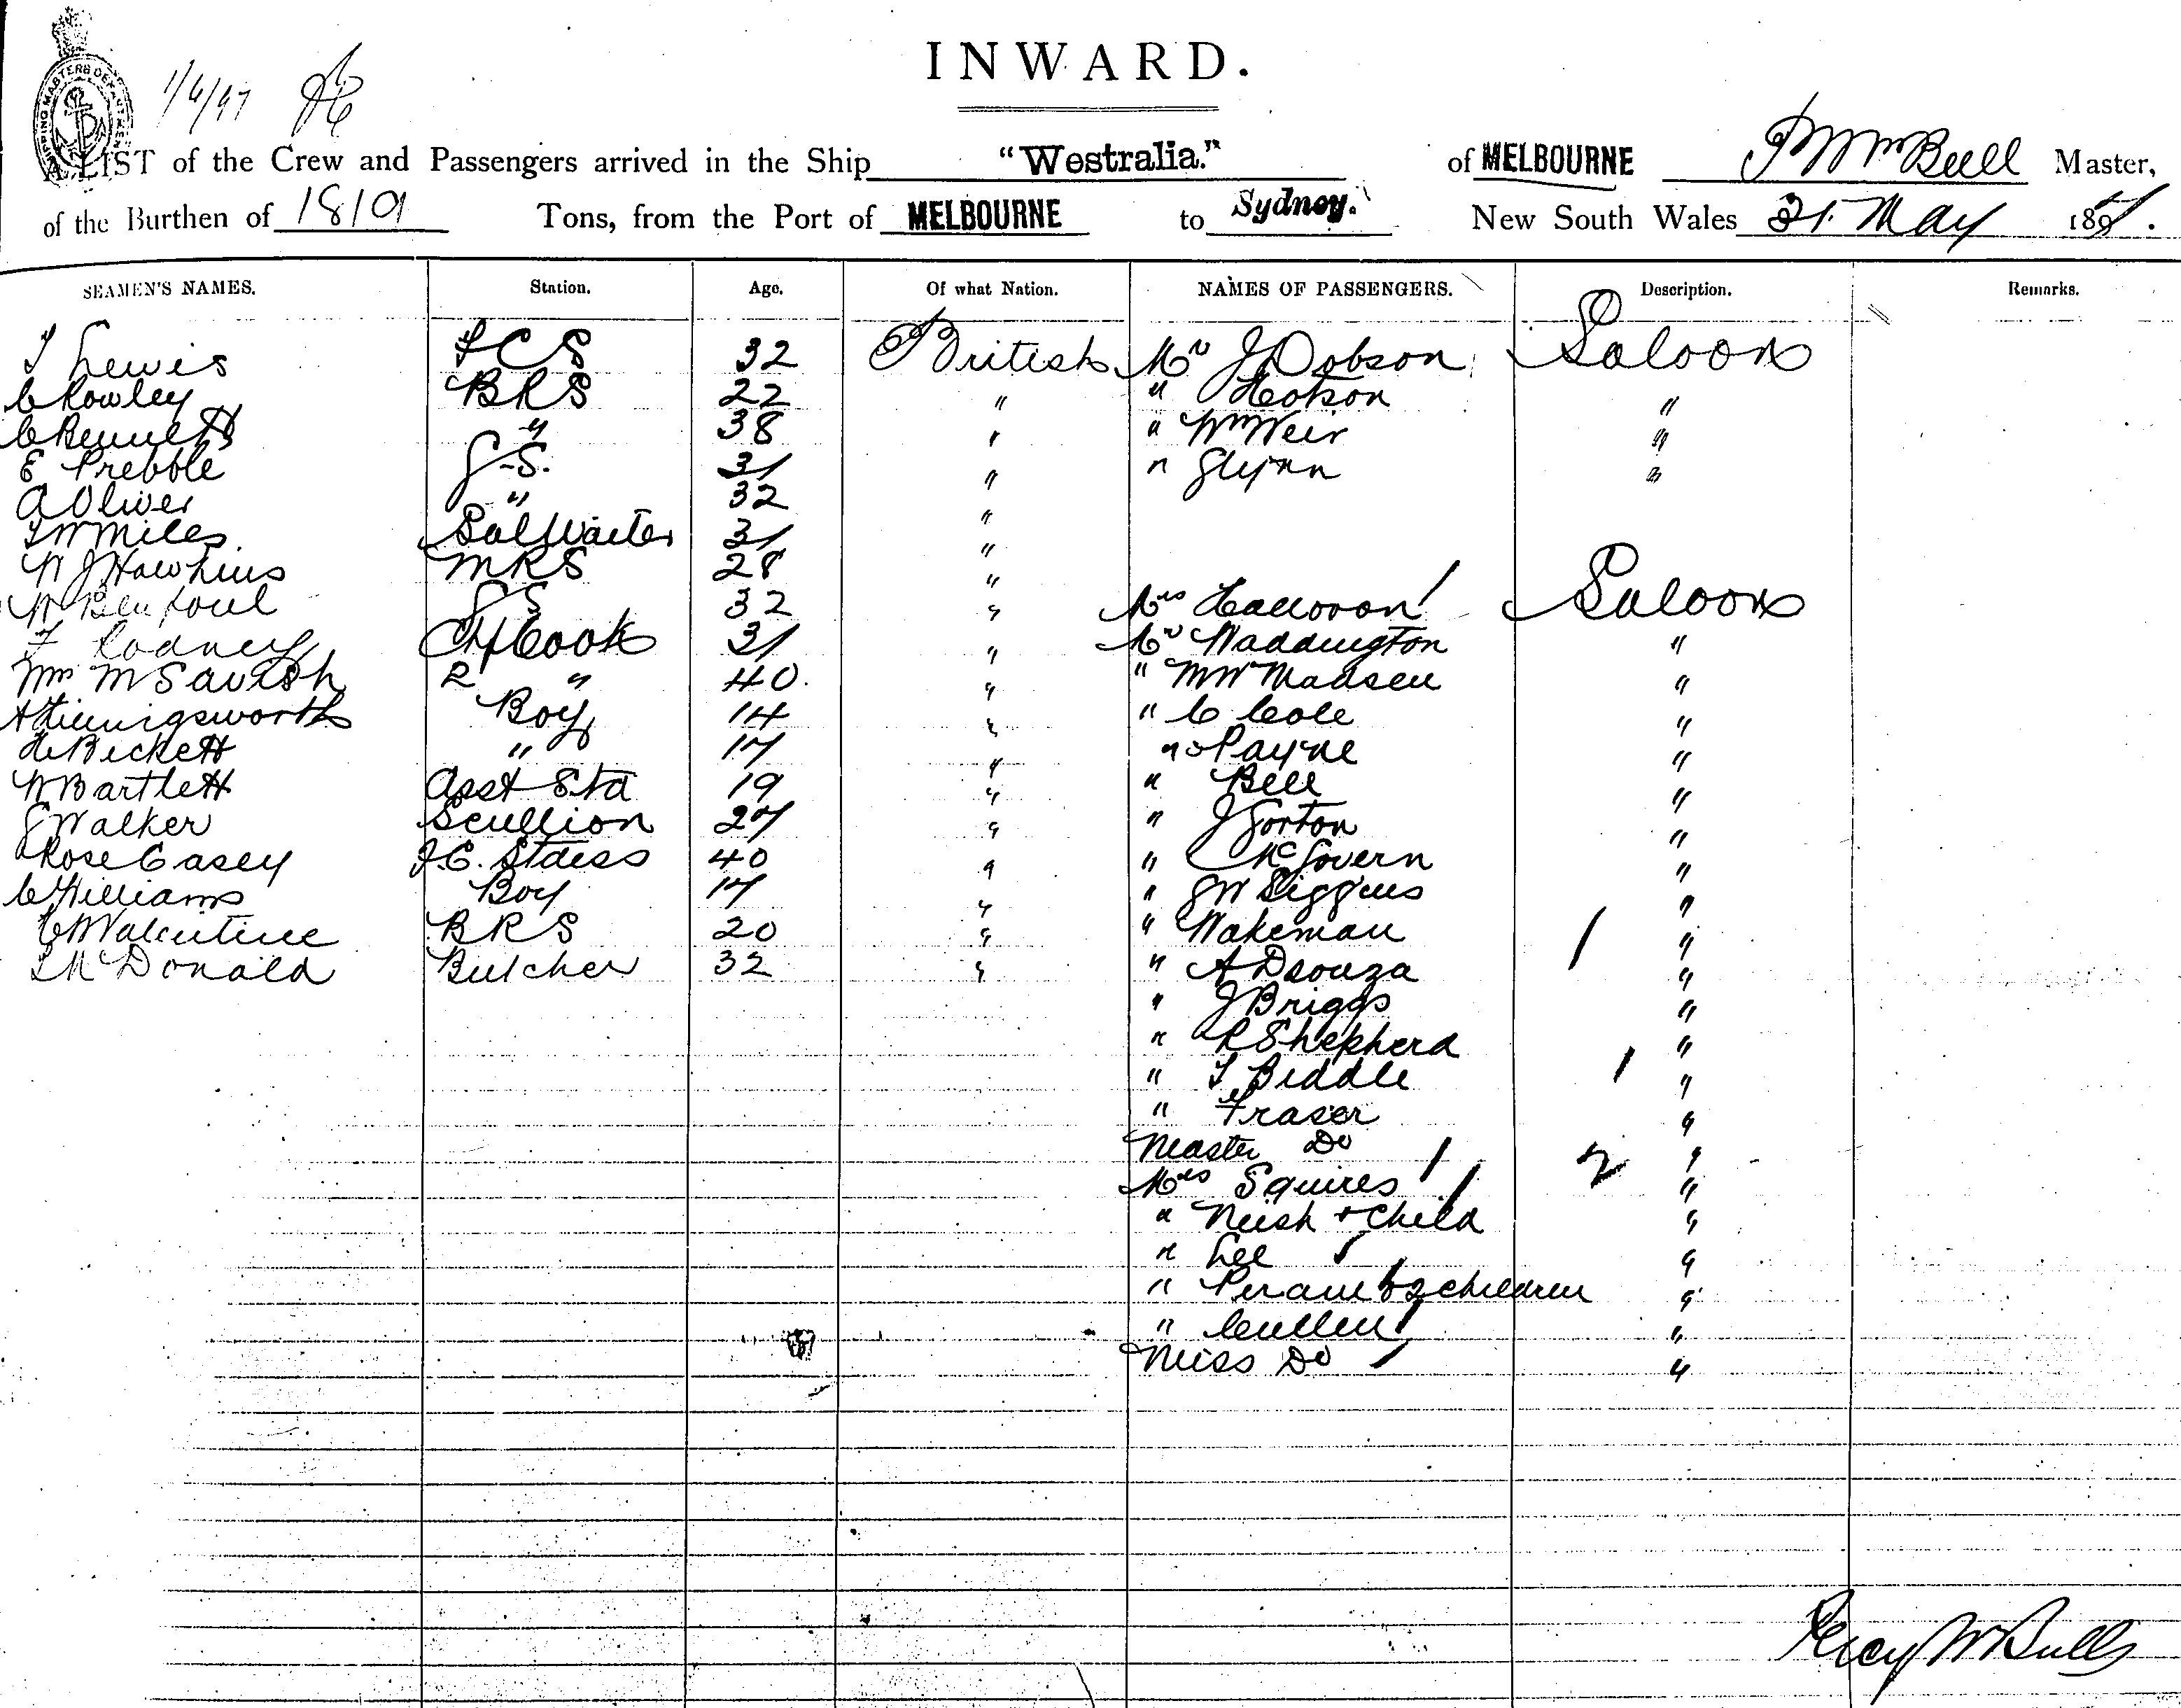 INWARD.
1/6/97
A LIST of the Crew and Passengers arrived in the Ship "Westralia." of MELBOURNE Master,
of the Burthen of 1819 Tons, from the Port of MELBOURNE to Sydney. New South Wales 31. May 1897.
SEAMEN'S NAMES. Station. Age. Of what Nation. NAMES OF PASSENGERS. Description. Remarks.
Lewis FCS 32 British Mr J Dobson Saloon
C Rowley BRS 22 " " Hotson "
C Bennett " 38 " " Wm Weir "
E Prebble G.S. 31 " " Glynn "
A Oliver " 32 "
Miles Sal Waiter 31 "
W J Hawkins MRS 28 "
W GS 32 " Mrs Halloran Saloon
F Rodney Ch Cook 31 " Mr Waddington "
Wm 2 " 40. " " MW Madsen "
Boy 14 " " C Cole "
Beckett " 17 " " Payne "
W Bartlett Asst Std 19 " " Bell "
Walker Scullion 27 " " J Gorton "
Rose Casey F.C. Staiss 40 " " McGovern "
C Williams Boy 17 " " "
Valentine BRS 20 " " Wakeman "
McDonald Butcher 32 " " A Dsouza "
" J Briggs "
" R Shepherd "
" Biddle "
" Fraser "
Master Do 2 "
Mrs Squires "
" Neish + Child "
" Lee "
" 2 children "
" Cullen "
Miss Do "
Percy W Bull